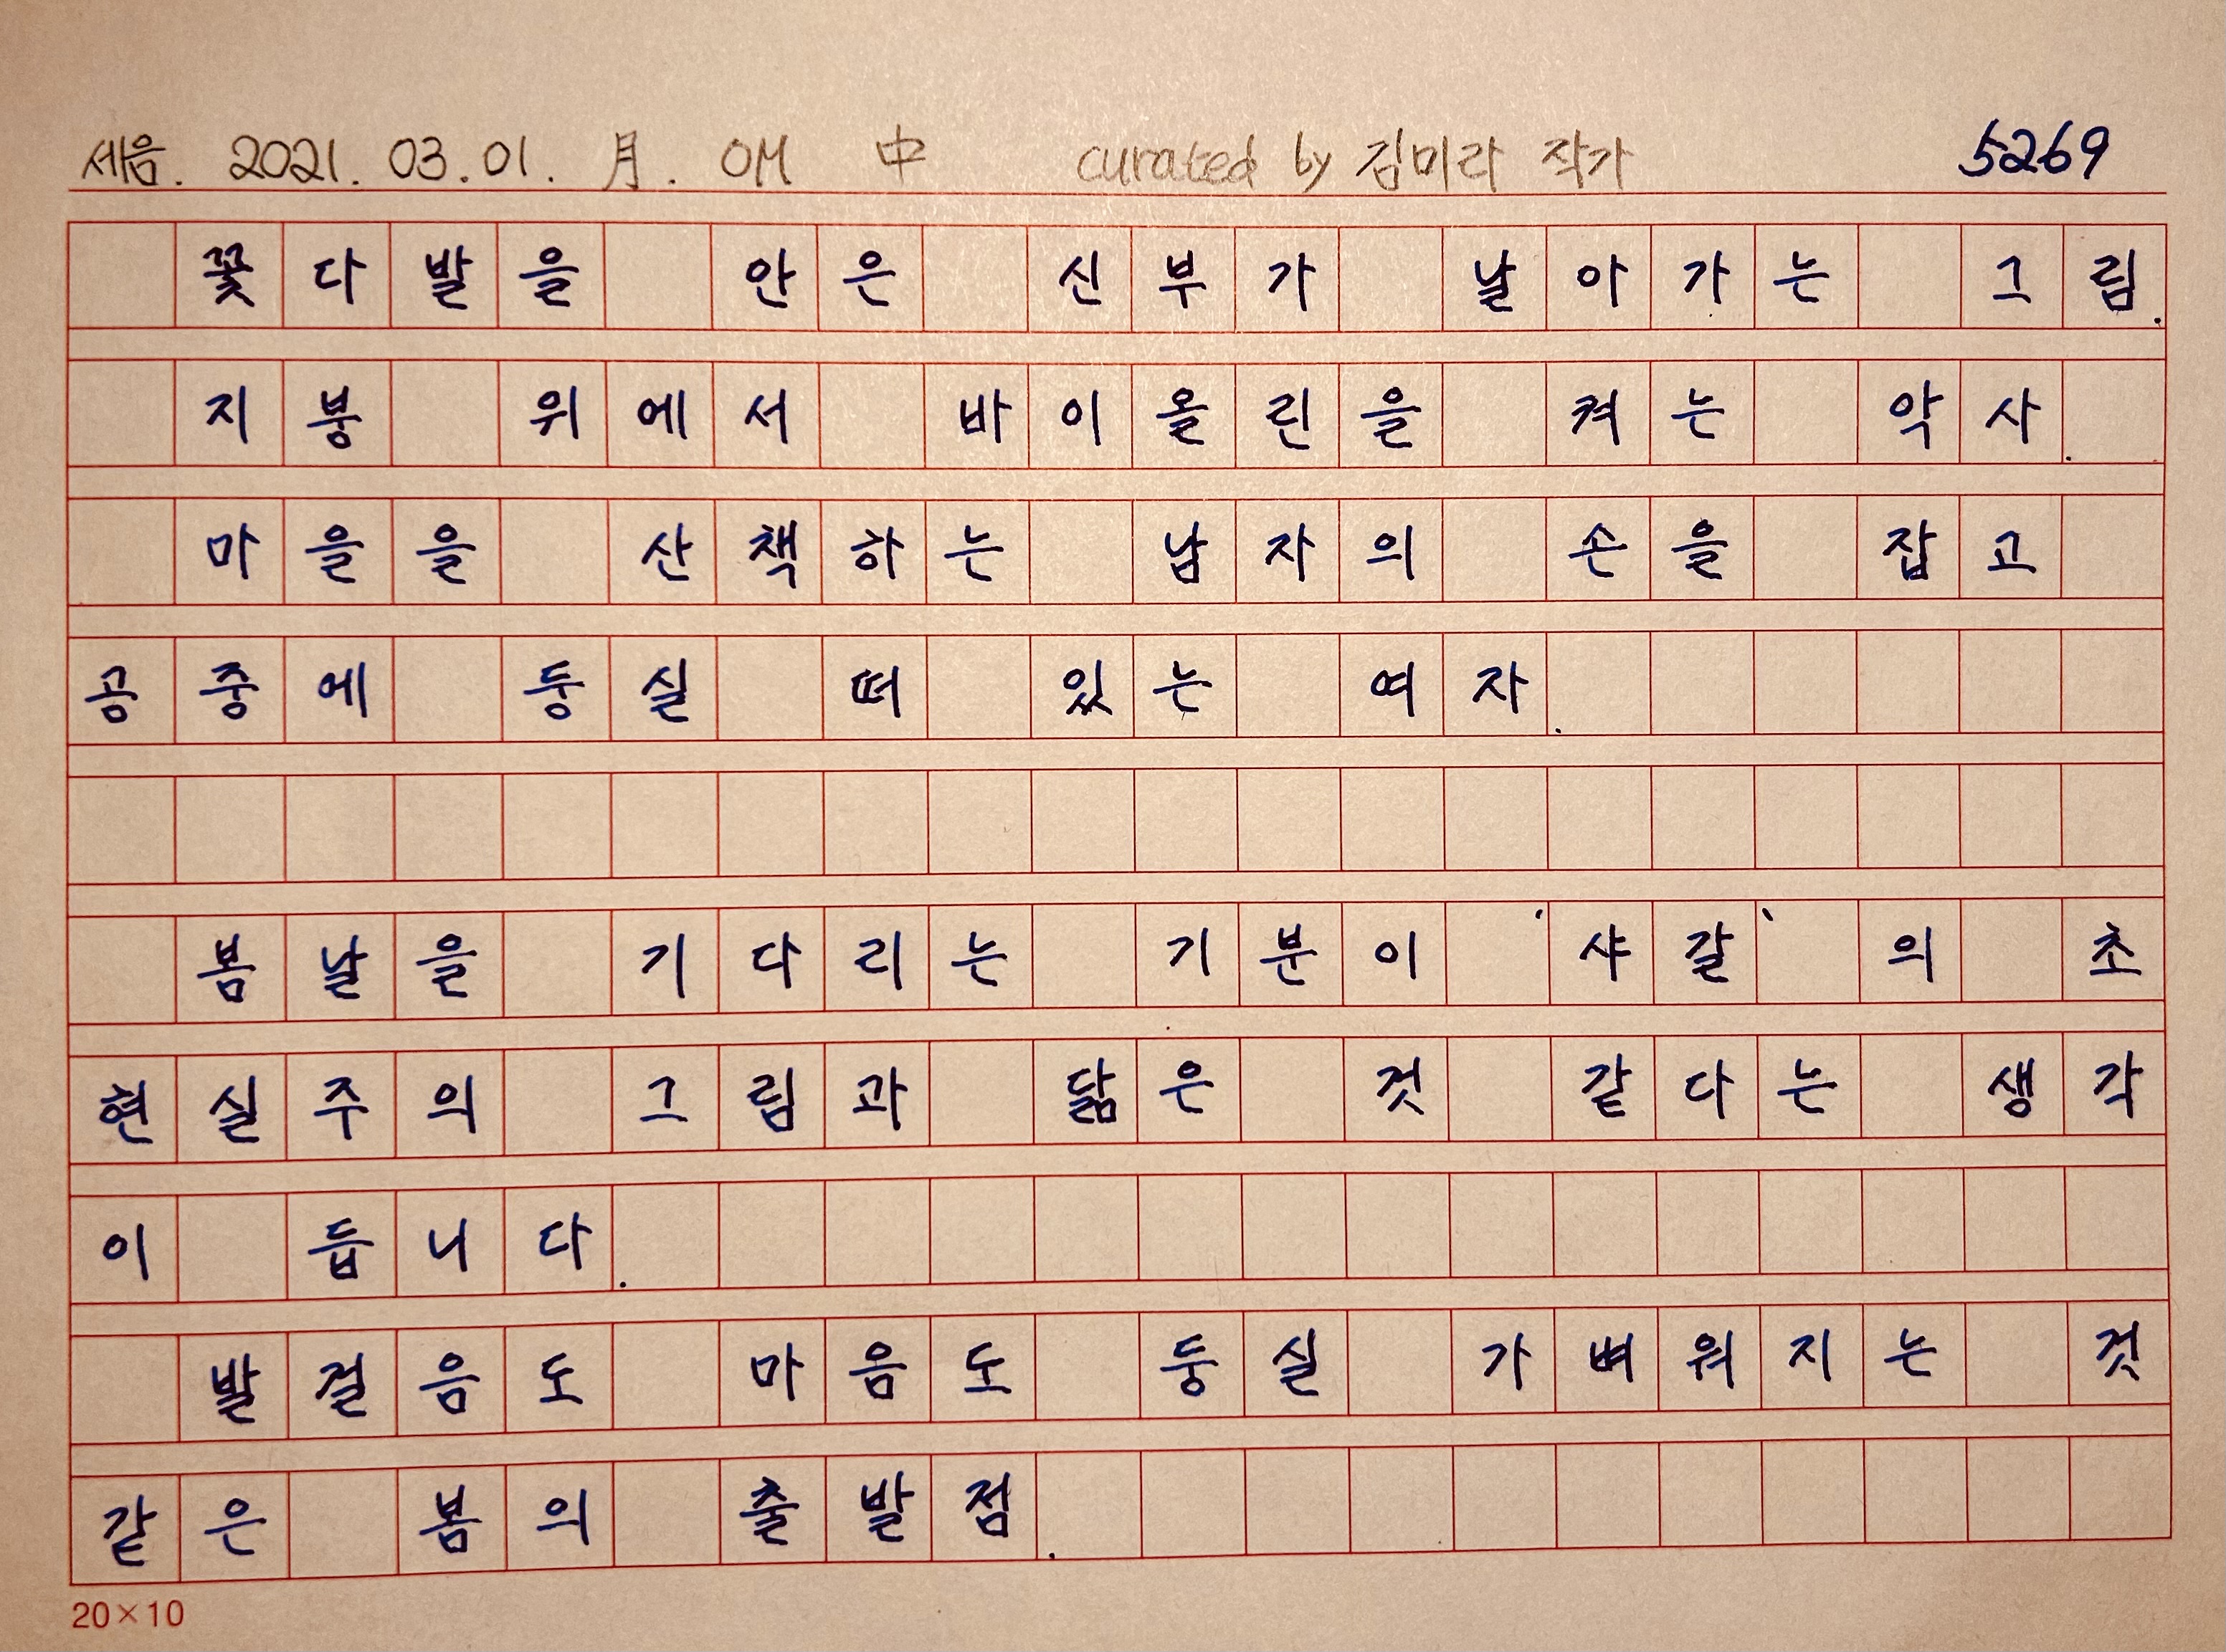 세음. 2021. 03. 01. 月. OM 中 curated by 김미라 작가 5269
꽃다발을 안은 신부가 날아가는 그림.
지붕 위에서 바이올린을 켜는 악사.
마을을 산책하는 남자의 손을 잡고
공중에 둥실 떠 있는 여자.
봄날을 기다리는 기분이 '샤갈'의 초
현실주의 그림과 닮은 것 같다는 생각
이 듭니다.
발걸음도 마음도 둥실 가벼워지는 것
같은 봄의 출발점.
20×10